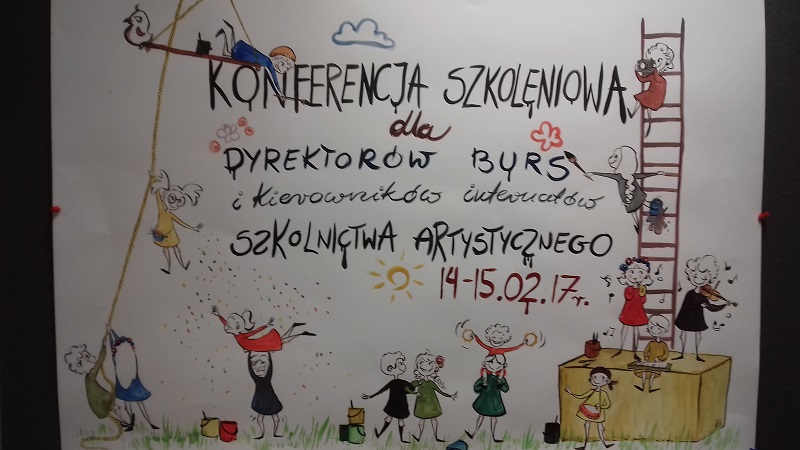 KONFERENCJA SZKOLENIOWA
dla
DYREKTORÓW BURS
i kierowników internatów
SZKOLNICTWA ARTYSTYCZNEGO
14-15.02.17r.